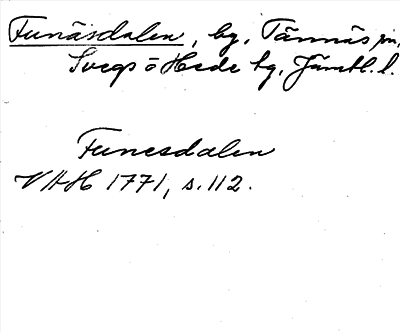 Funäsdalen, by, Tännäs sn,
Svegs o Hede tg, Jämtl. l.
Funesdalen
VAH 1771, s. 112.